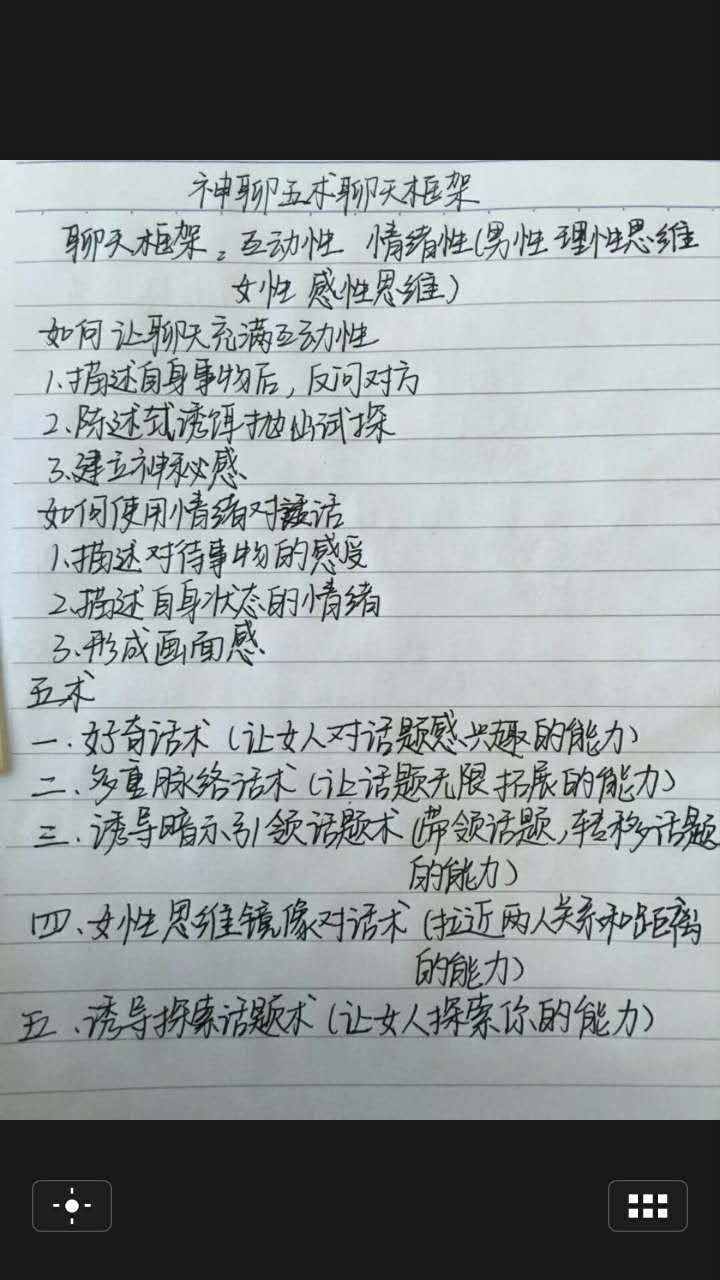 神聊五术聊天框架
聊天框架：互动性 情绪性(男性理性思维
女性 感性思维)
如何让聊天充满互动性
1.描述自身事物后,反问对方
2.陈述式诱饵抛出试探
3.建立神秘感
如何使用情绪对话
1.描述对待事物的感受
2.描述自身状态的情绪
3.形成画面感
五术
一.好奇话术(让女人对话题感兴趣的能力)
二.多重脉络话术(让话题无限拓展的能力)
三.诱导暗示引领话题术(带领话题,转移话题
的能力)
四、女性思维镜像对话术(拉近两人关系和距离
的能力)
五.诱导探索话题术(让女人探索你的能力)